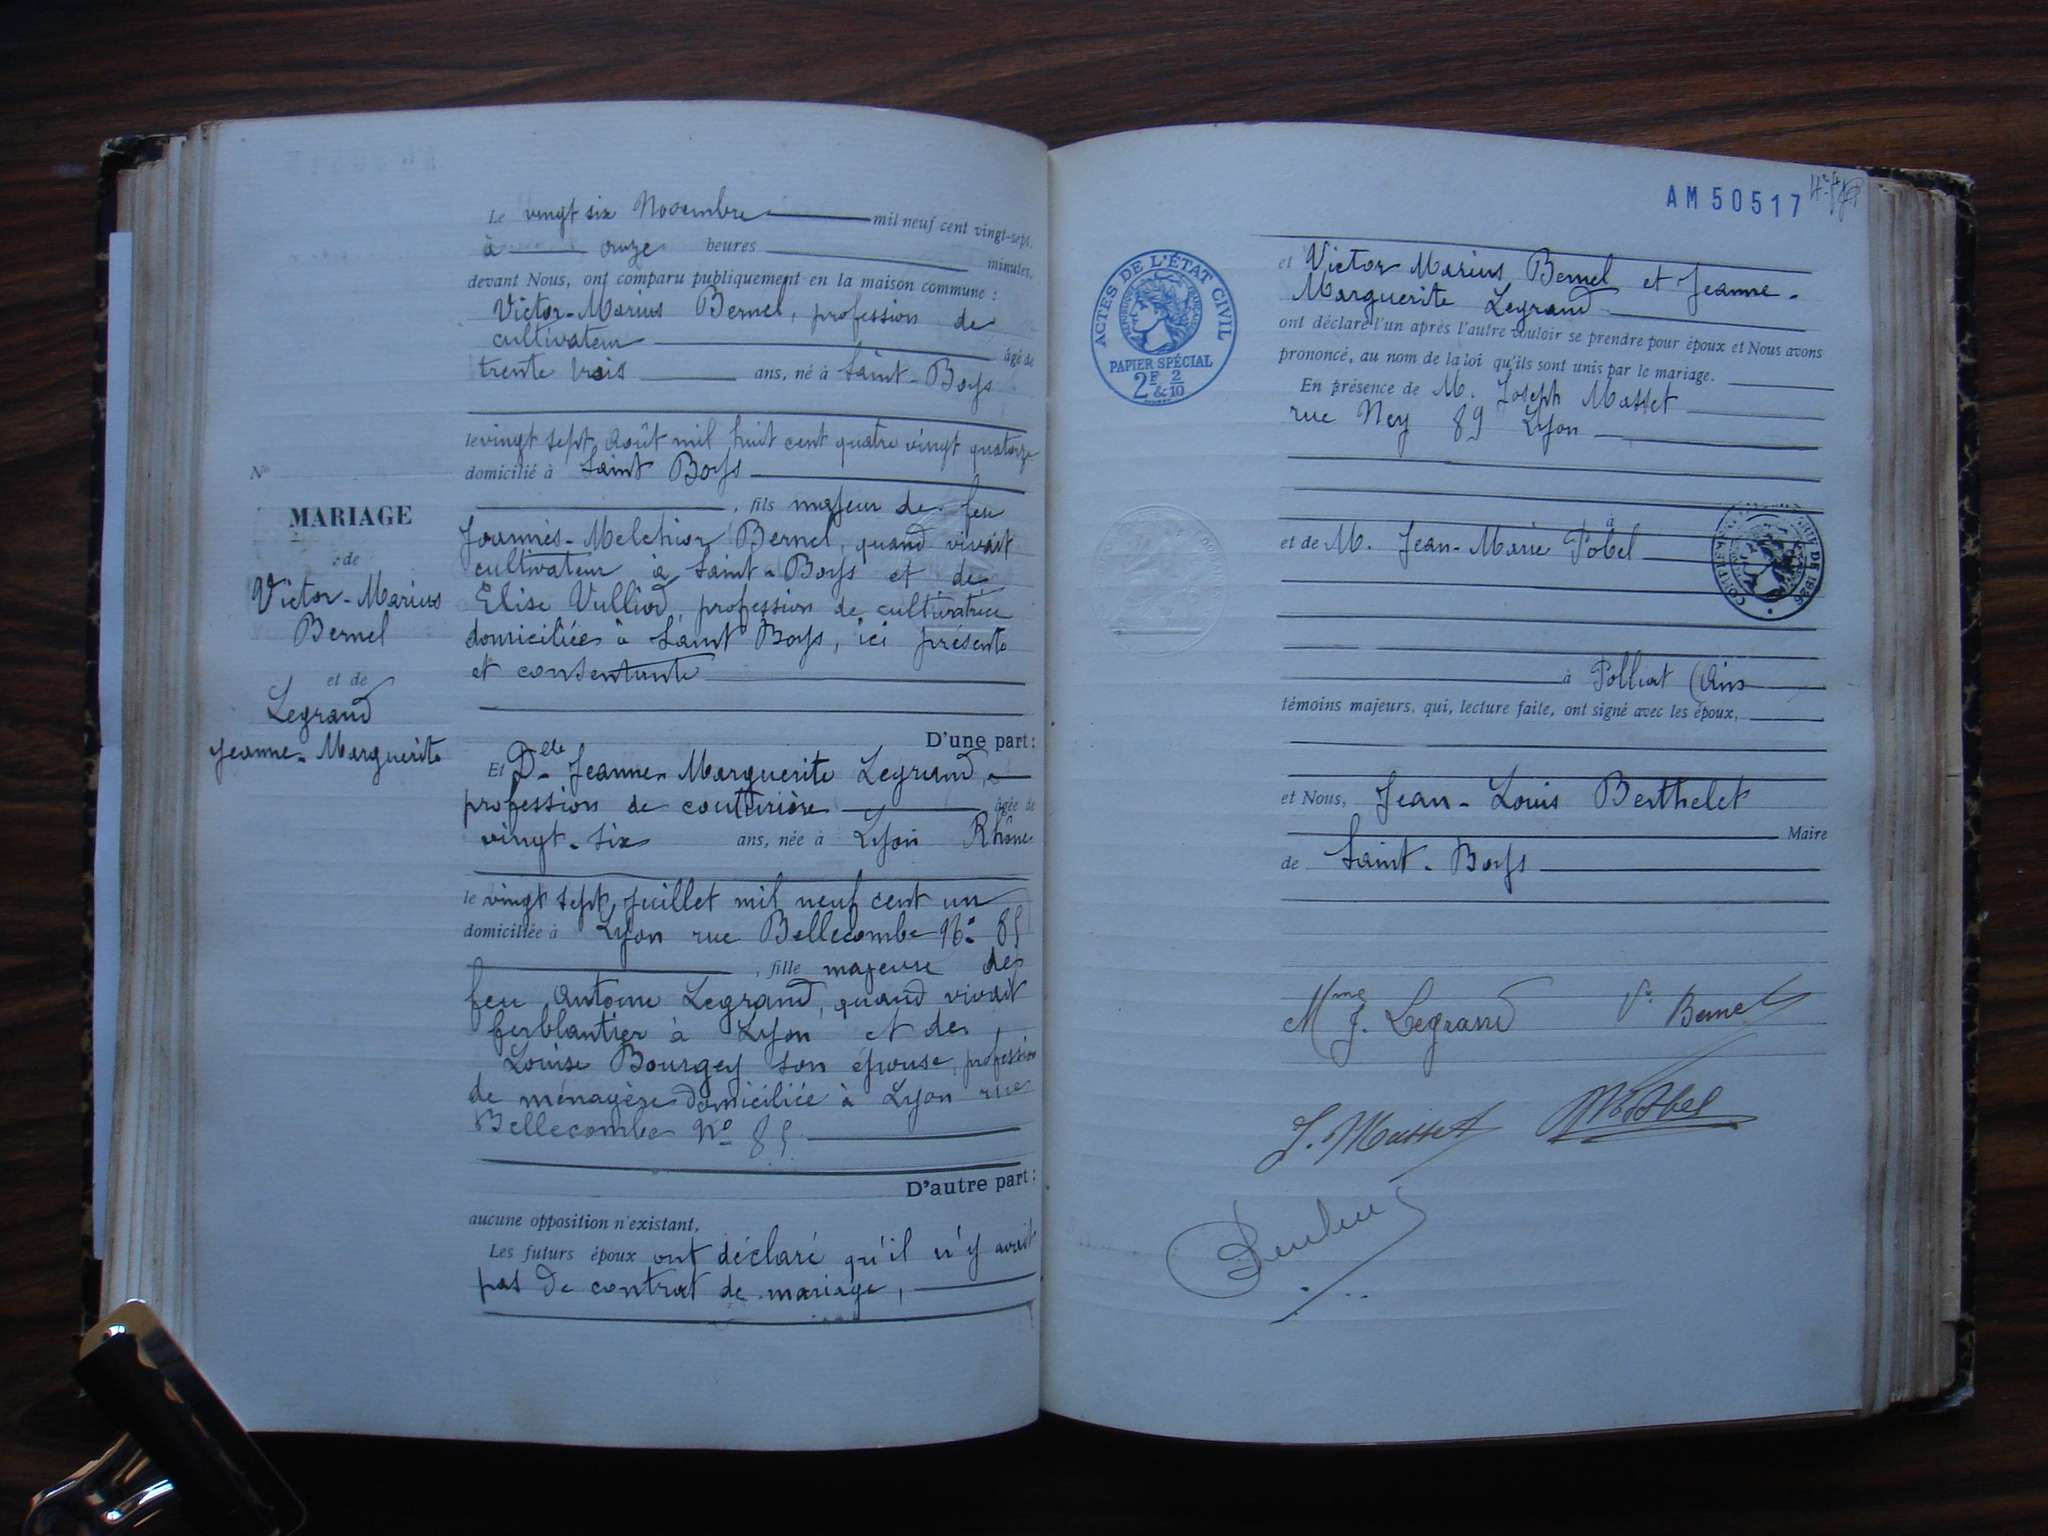 Le vingt six Novembre mil neuf cent vingt-sept,
à onze heures minutes,
devant Nous, ont comparu publiquement en la maison commune :
Victor-Marius Bernel, profession de
cultivateur âgé de
trente trois ans, né à Saint-Boys
le vingt sept Août mil huit cent quatre vingt quatorze
domicilié à Saint Boys
, fils majeur de feu
Joannès-Melchior Bernel, quand vivait
cultivateur à Saint-Boys et de
Elise Vulliod, profession de cultivatrice
domiciliée à Saint Boys, ici présente
et consentante
D'une part :
Et Delle Jeanne-Marguerite Legrand,
profession de couturière âgée de
vingt-six ans, née à Lyon Rhône
le vingt sept Juillet mil neuf cent un
domiciliée à Lyon rue Bellecombe No 85
, fille majeure de
feu Antoine Legrand, quand vivait
ferblantier à Lyon et de
Louise Bourgey son épouse, profession
de ménagère domiciliée à Lyon rue
Bellecombe No 85
D'autre part :
aucune opposition n'existant.
Les futurs époux ont déclaré qu'il n'y avait
pas de contrat de mariage,
No
MARIAGE
de
Victor-Marius
Bernel
et de
Legrand
Jeanne-Marguerite
AM 50517
ACTES DE L'ÉTAT CIVIL
RÉPUBLIQUE FRANÇAISE
PAPIER SPÉCIAL
2F & 2/10
et Victor Marius Bernel et Jeanne-
Marguerite Legrand
ont déclaré l'un après l'autre vouloir se prendre pour époux et Nous avons
prononcé, au nom de la loi qu'ils sont unis par le mariage.
En présence de M. Joseph Masset
rue Ney 89 Lyon
et de M. Jean-Marie Pobel
à Polliat (Ain
témoins majeurs, qui, lecture faite, ont signé avec les époux,
et Nous, Jean-Louis Berthelet
Maire
de Saint-Boys
Mme J. Legrand
V. Bernel
J. Masset